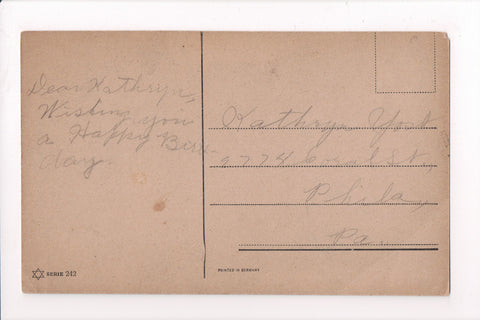 Dear Kathryn,
Wishing you
a Happy Birth-
day.
Kathryn Yost
2774 Coral St.,
Phila,
Pa.
SERIE 242
PRINTED IN GERMANY